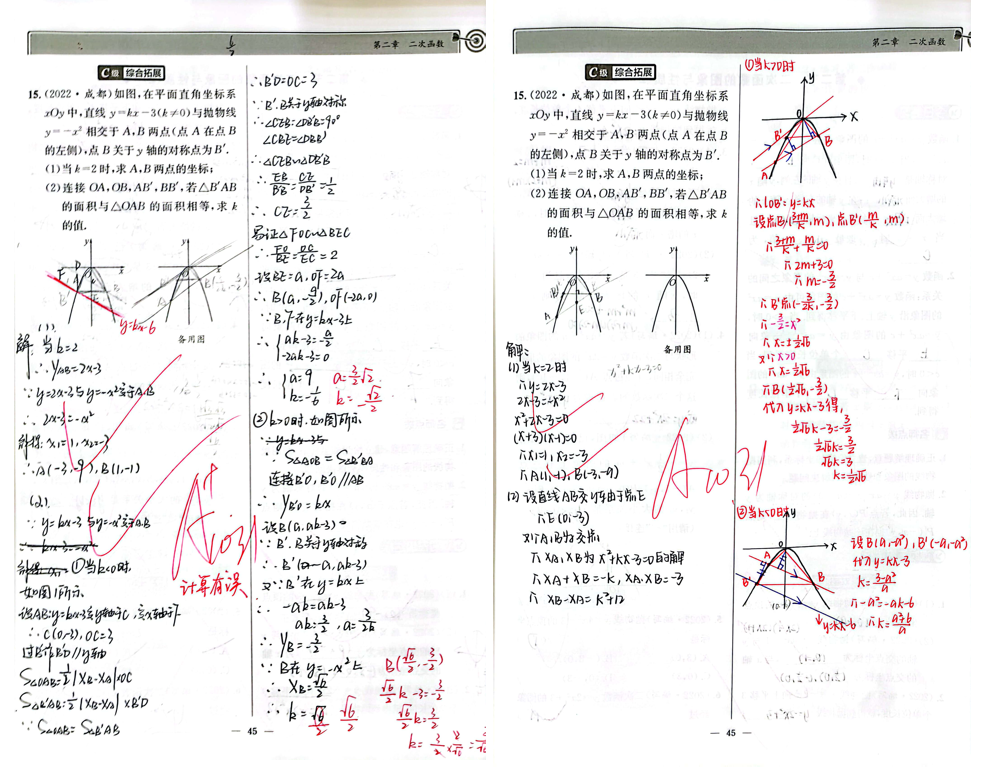 第二章 二次函数
C级 综合拓展
15. (2022·成都)如图,在平面直角坐标系
xOy中,直线 y=kx-3(k≠0)与抛物线
y=-x² 相交于A,B两点(点A在点B
的左侧),点B关于y轴的对称点为B′.
(1)当k=2时,求A,B两点的坐标;
(2)连接OA,OB,AB′,BB′,若△B′AB
的面积与△OAB的面积相等,求k
的值.
y=kx-6
备用图
(1).
解: 当k=2
∴ yAB=2x-3
∵ y=2x-3与y=-x²交于A.B
∴ 2x-3=-x²
解得: x₁=1, x₂=-3
∴ A(-3,-9), B(1,-1)
(2).
∵ y=kx-3与y=-x²交于A.B
①当k<0时.
如图1所示
设AB:y=kx-3交y轴于C,交x轴于F
∴ C(0,-3), OC=3
过B′作B′D//y轴
S△OAB=½|XB-XA|×OC
S△B′AB=½|XB-XA|×B′D
∵ S△OAB=S△B′AB
∴ B′D=OC=3
∵ B′.B关于y轴对称
∴ ∠CEB=∠DB′B=90°
∠CBE=∠DBB′
∴ △CEB∽△DB′B
∴ EB/BB′=CE/DB′=1/2
∴ CE=3/2
易证△FOC∽△BEC
∴ FO/BE=OC/EC=2
设BE=a, OF=2a
∴ {ak-3=-3/2
-2ak-3=0
a=3/2√2
k=-√2/2
②k>0时.如图所示
∵ S△AOB=S△B′BA
连接B′O, B′O//AB
∴ yB′O=kx
设B(a,ak-3)
∵ B′.B关于y轴对称
∴ B′(-a,ak-3)
又∵ B′在y=kx上
∴ -ak=ak-3
ak=3/2, a=3/2k
∴ yB=-3/2
∵ B在y=-x²上
∴ XB=√6/2
∴ k=√6/2 √6/2
B(√6/2,-3/2)
√6/2k-3=-3/2
√6/2k=3/2
计算有误
45
第二章 二次函数
C级 综合拓展
15. (2022·成都)如图,在平面直角坐标系
xOy中,直线 y=kx-3(k≠0)与抛物线
y=-x² 相交于A,B两点(点A在点B
的左侧),点B关于y轴的对称点为B′.
(1)当k=2时,求A,B两点的坐标;
(2)连接OA,OB,AB′,BB′,若△B′AB
的面积与△OAB的面积相等,求k
的值.
备用图
解:
(1)当k=2时
∴y=2x-3
2x-3=-x²
x²+2x-3=0
(x+3)(x-1)=0
∴x₁=1, x₂=-3
∴A(1,-1), B(-3,-9)
(2) 设直线AB交y轴于点E
∴E(0,-3)
又∵A,B为交点
∴XA,XB为x²+kx-3=0的解
∴XA+XB=-k, XA·XB=-3
∴ XB-XA=k²+12
①当k>0时
∴lOB′:y=kx
设点B(3+m/k,m),点B′(m/k,m)
∴3+m/k+m/k=0
∴2m+3=0
∴m=-3/2
∴B′点(-3/2k,-3/2)
∴-3/2=-x²
∴x=±½√6
又∵x>0
∴x=½√6
∴B(½√6,-3/2)
代入y=kx-3得,
½√6k-3=-3/2
½√6k=3/2
√6k=3
k=½√6
②当k<0时
设B(a,-a²), B′(-a,-a²)
代入y=kx-3
k=3-a²/a
∴-a²=-ak-6
y=kx-6
45